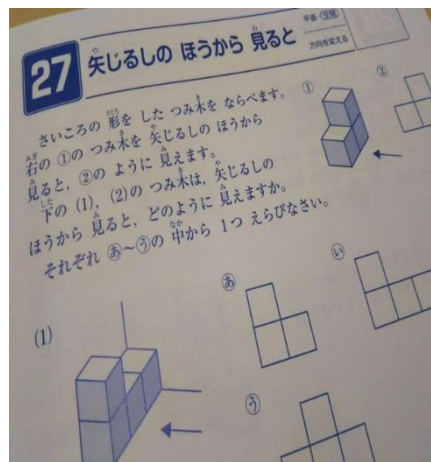 27
矢じるしの ほうから 見ると
方向を変える
さいころの 形を した つみ木を ならべます。
右の ①の つみ木を 矢じるしの ほうから
見ると，②の ように 見えます。
下の (1)，(2)の つみ木は，矢じるしの
ほうから 見ると，どのように 見えますか。
それぞれ あ〜うの 中から 1つ えらびなさい。
①
②
(1)
あ
い
う